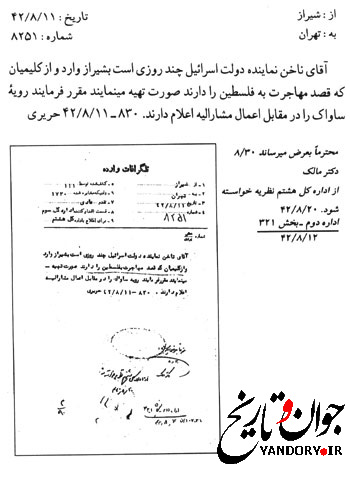 از : شیراز
تاریخ : ۴۲/۸/۱۱
به : تهران
شماره : ۸۲۵۱
آقای ناخن نماینده دولت اسرائیل چند روزی است بشیراز وارد و از کلیمیان
که قصد مهاجرت به فلسطین را دارند صورت تهیه مینمایند مقرر فرمایند رویهٔ
ساواک را در مقابل اعمال مشارالیه اعلام دارند. ۸۳۰ــ۴۲/۸/۱۱ حریری
محترماً بعرض میرساند ۸/۳۰
دکتر مالک
از اداره کل هشتم نظریه خواسته
شود. ۴۲/۸/۲۰
اداره دوم ــ بخش ۳۲۱
۴۲/۸/۱۲
تلگرافات وارده
از شیراز
به تهران
۴۲/۸/۱۲
۸۲۵۱
آقای ناخن نماینده دولت اسرائیل چند روزی است بشیراز وارد
و از کلیمیان که قصد مهاجرت بفلسطین را دارند صورت تهیه
مینمایند مقرر فرمایند رویه ساواک را در مقابل اعمال مشارالیه
اعلام دارند ۸۳۰ - ۴۲/۸/۱۱ حریری
جوان و تاریخ
YANDORY.IR